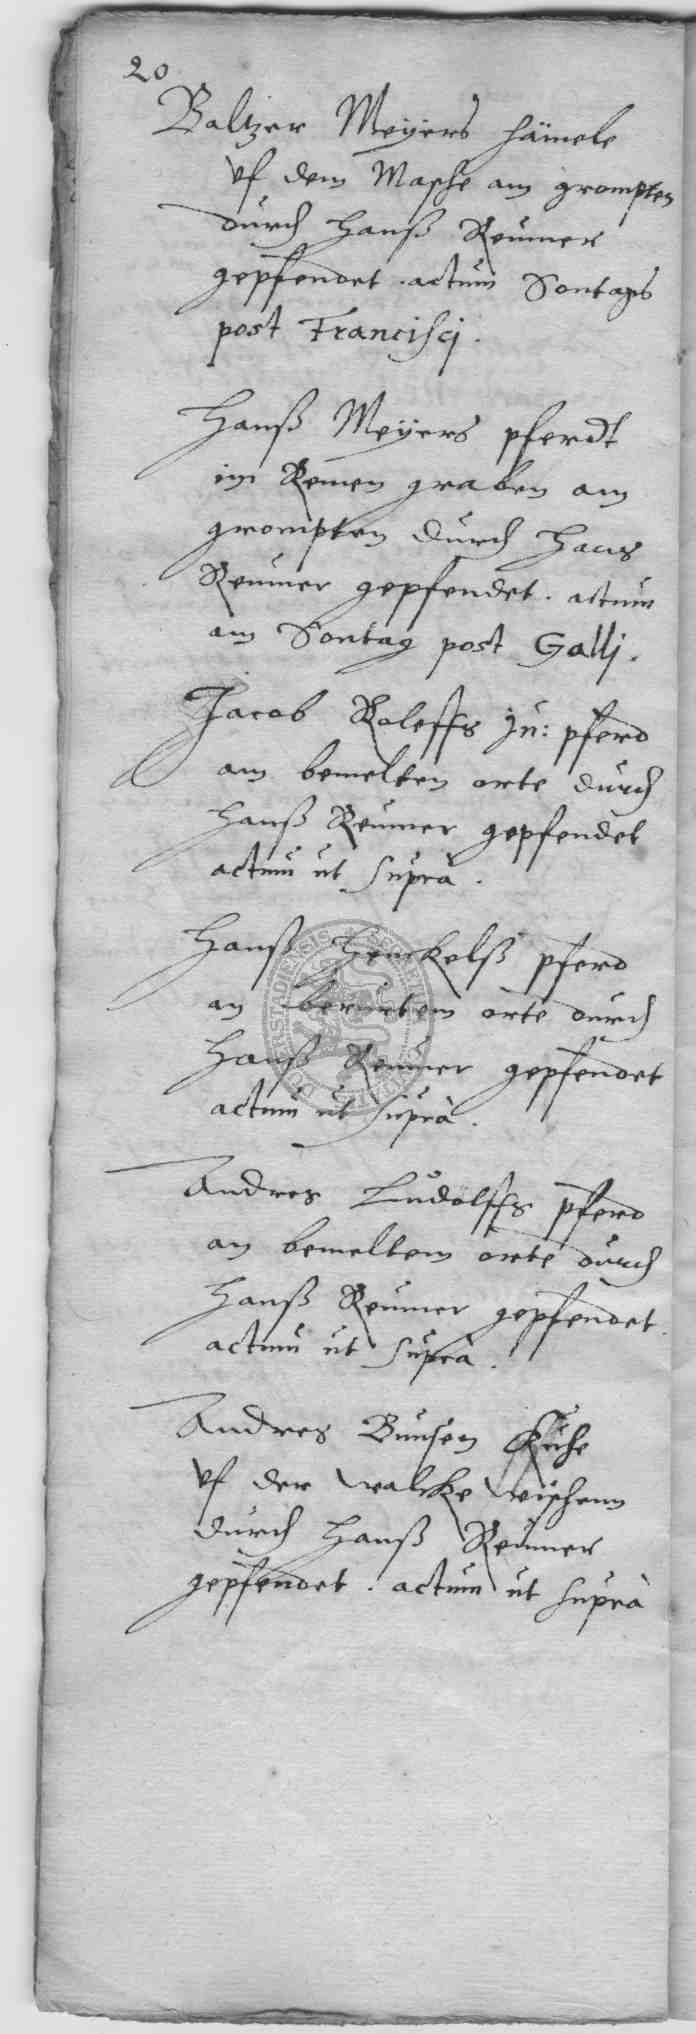 20
Baltzer Meÿers hämele
vf dem Masche am grompten
durch Hanß Reumer
gepfendet. actum Sontags
post Francisci.
Hanß Meÿers pferdt
im Remen graben am
grompten durch Hans
Reumer gepfendet. actum
am Sontag post Galli.
Jacob Roleffs Ju: pferd
am bemelten orte durch
Hanß Reumer gepfendet
actum ut suprà.
Hanß Henckelß pferd
an berurtem orte durch
Hanß Reumer gepfendet
actum ut suprà.
Andres Ludolffs pferd
an bemeltem orte durch
Hanß Reumer gepfendet.
actum ut suprà.
Andres Bunsen Kuhe
vf der walcke wischenn
durch Hanß Reumer
gepfendet. actum ut suprà